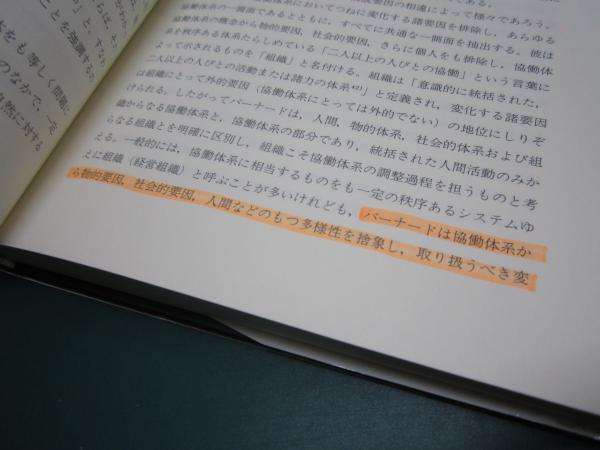 要因の相違によって様々であろう。
協働体系においてつねに変化する諸要因を排除し、あらゆる
協働体系の一側面であるとともに、すべてに共通な一側面を抽出する。彼は
協働体系の概念から物的要因、社会的要因、さらに個人をも排除し、協働体
系を秩序ある体系たらしめている「二人以上の人びとの協働」という言葉に
よって示されるものを「組織」と名付ける。組織は「意識的に統括された、
二人以上の人びとの活動または諸力の体系」と定義され、変化する諸要因
は組織にとって外的要因（協働体系にとっては外的でない）の地位にしりぞ
けられる。したがってバーナードは、人間、物的体系、社会的体系および組
織からなる協働体系と、協働体系の部分であり、統括された人間活動のみか
らなる組織とを明確に区別し、組織こそ協働体系の調整過程を担うものと考
える。一般的には、協働体系に相当するものをも一定の秩序あるシステムゆ
えに組織（経営組織）と呼ぶことが多いけれども、バーナードは協働体系か
ら物的要因、社会的要因、人間などのもつ多様性を捨象し、取り扱うべき変
をも等しく問題に
のなかで、一定
自然に対する